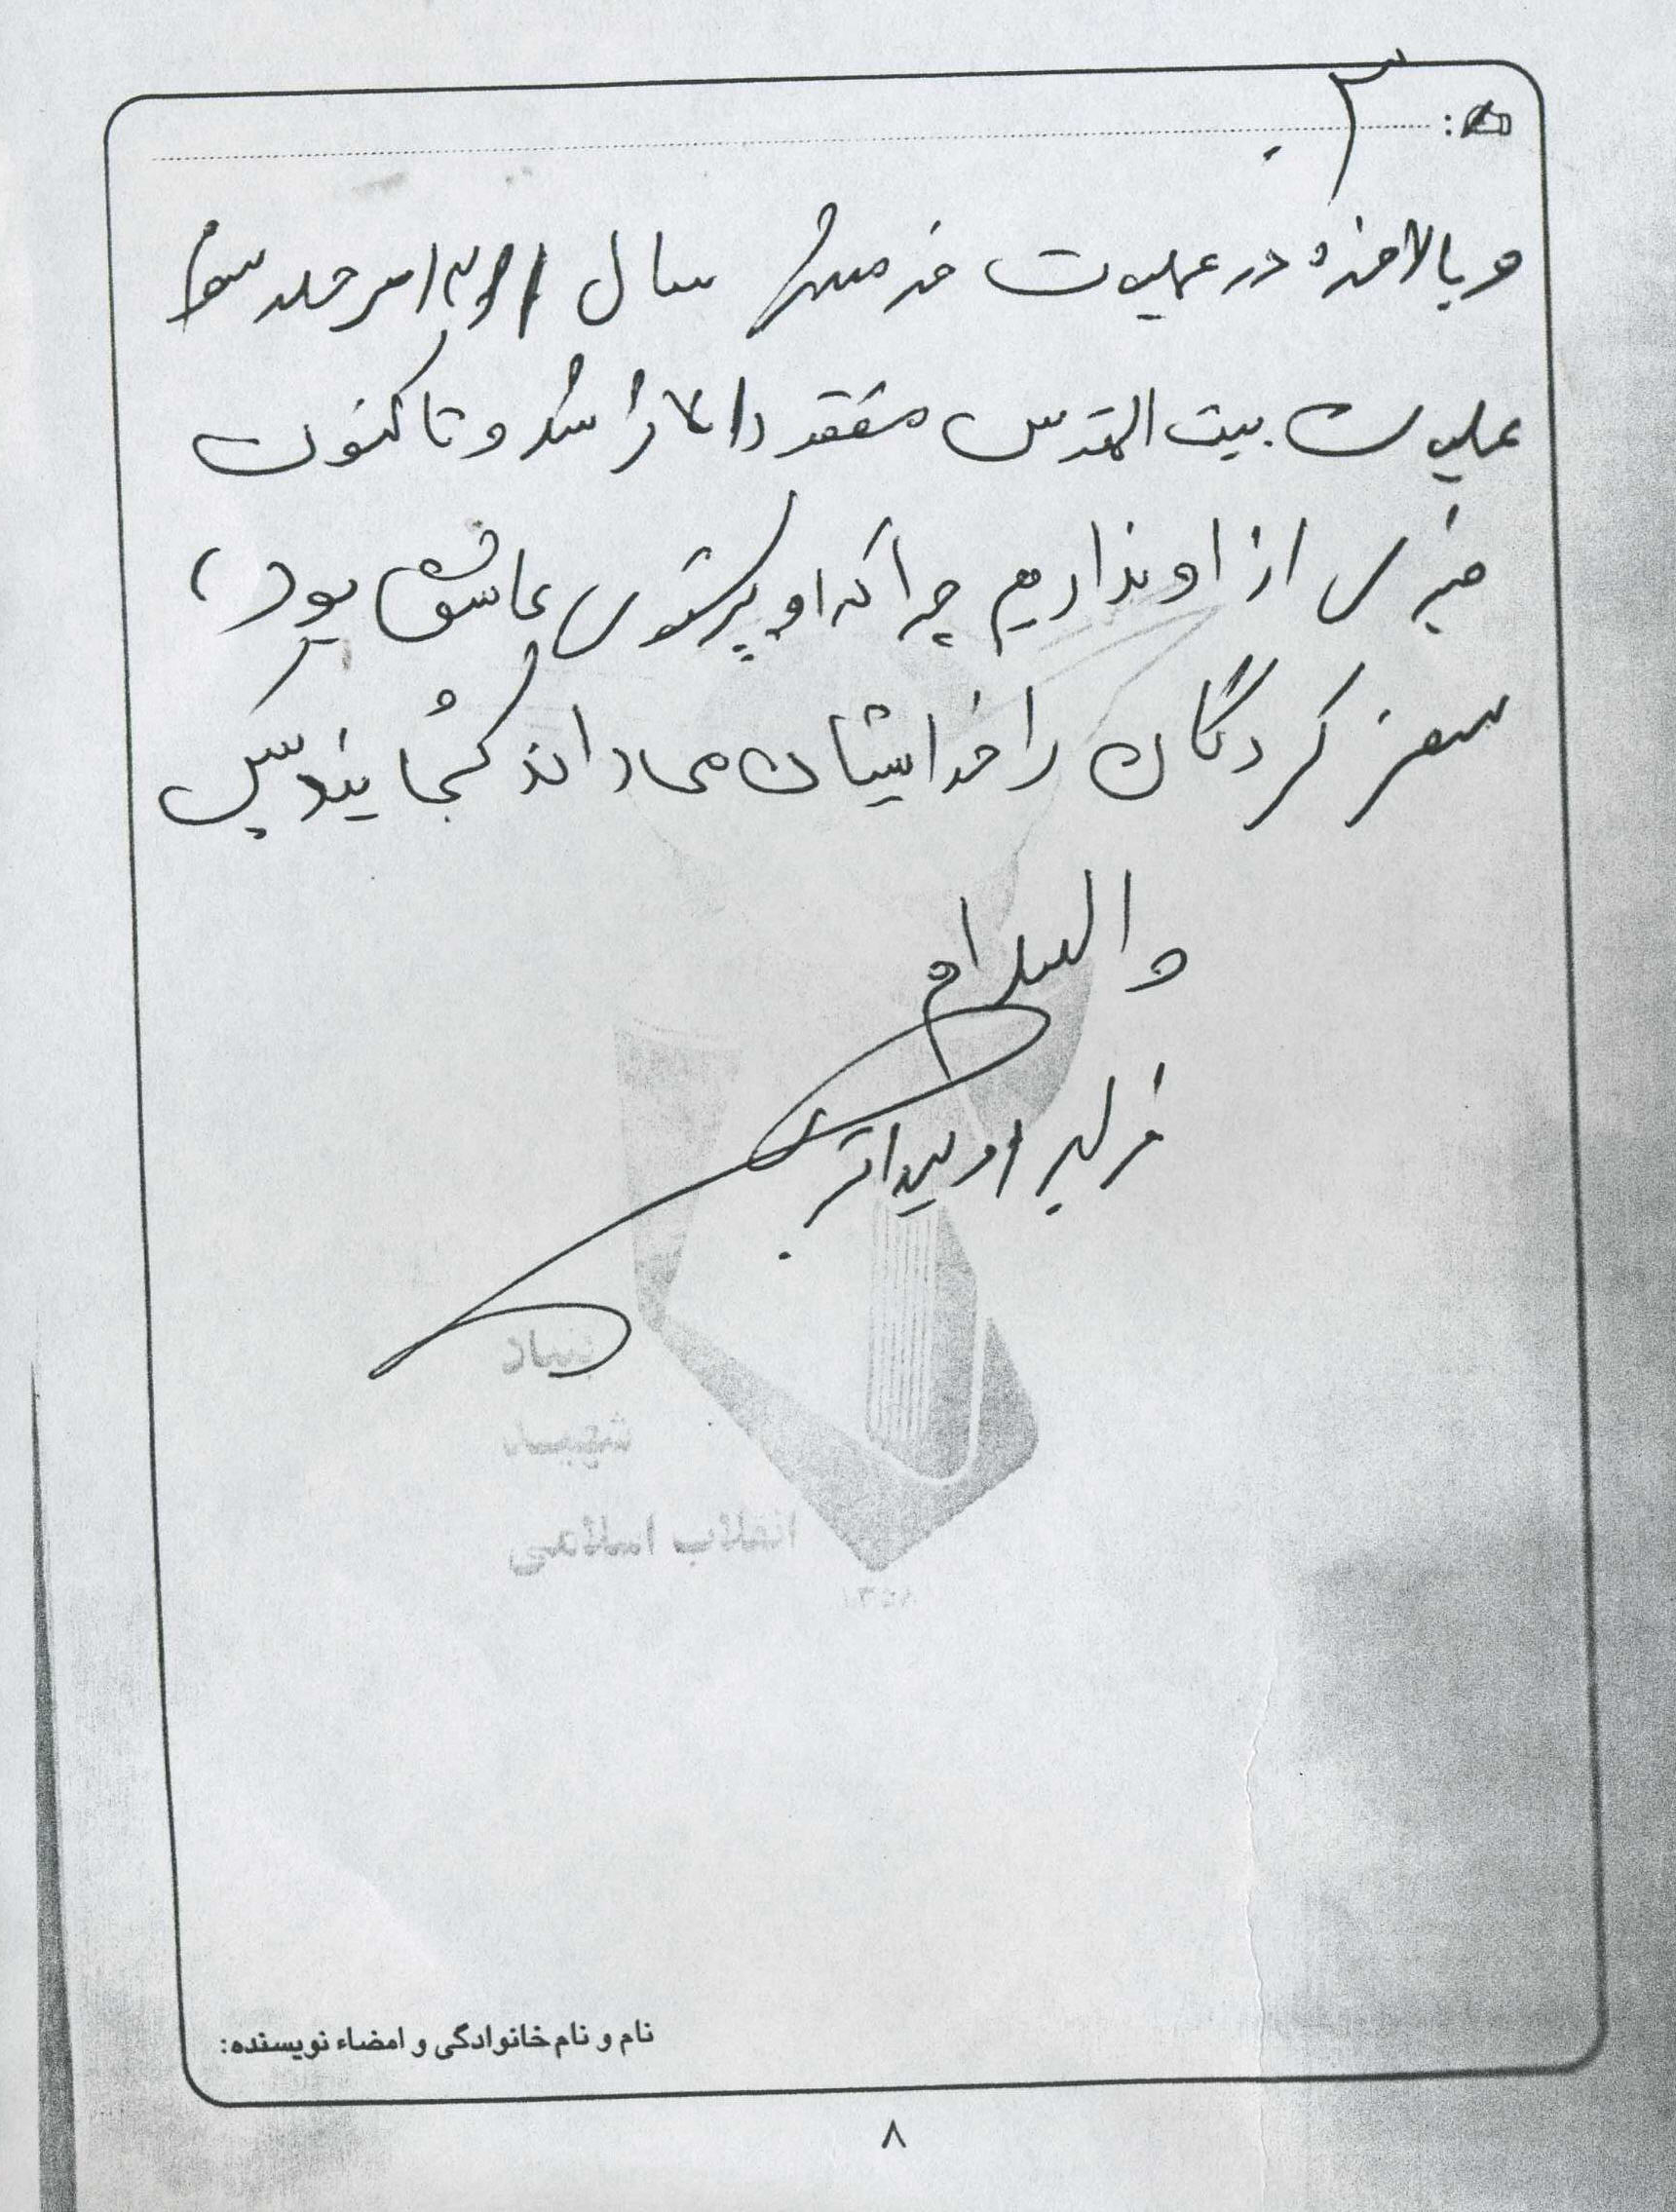 ۳.
و بالاخره در عملیات خرمشهر سال ۱۳۶۱ مرحله سوم
عملیات بیت المقدس مفقود الاثر شد و تا کنون
خبری از او نداریم چرا که او پرستوی عاشق بود،
سفر کردگان را خدایشان می داند کجایند و بس
والسلام
نام و نام خانوادگی و امضاء نویسنده:
۸